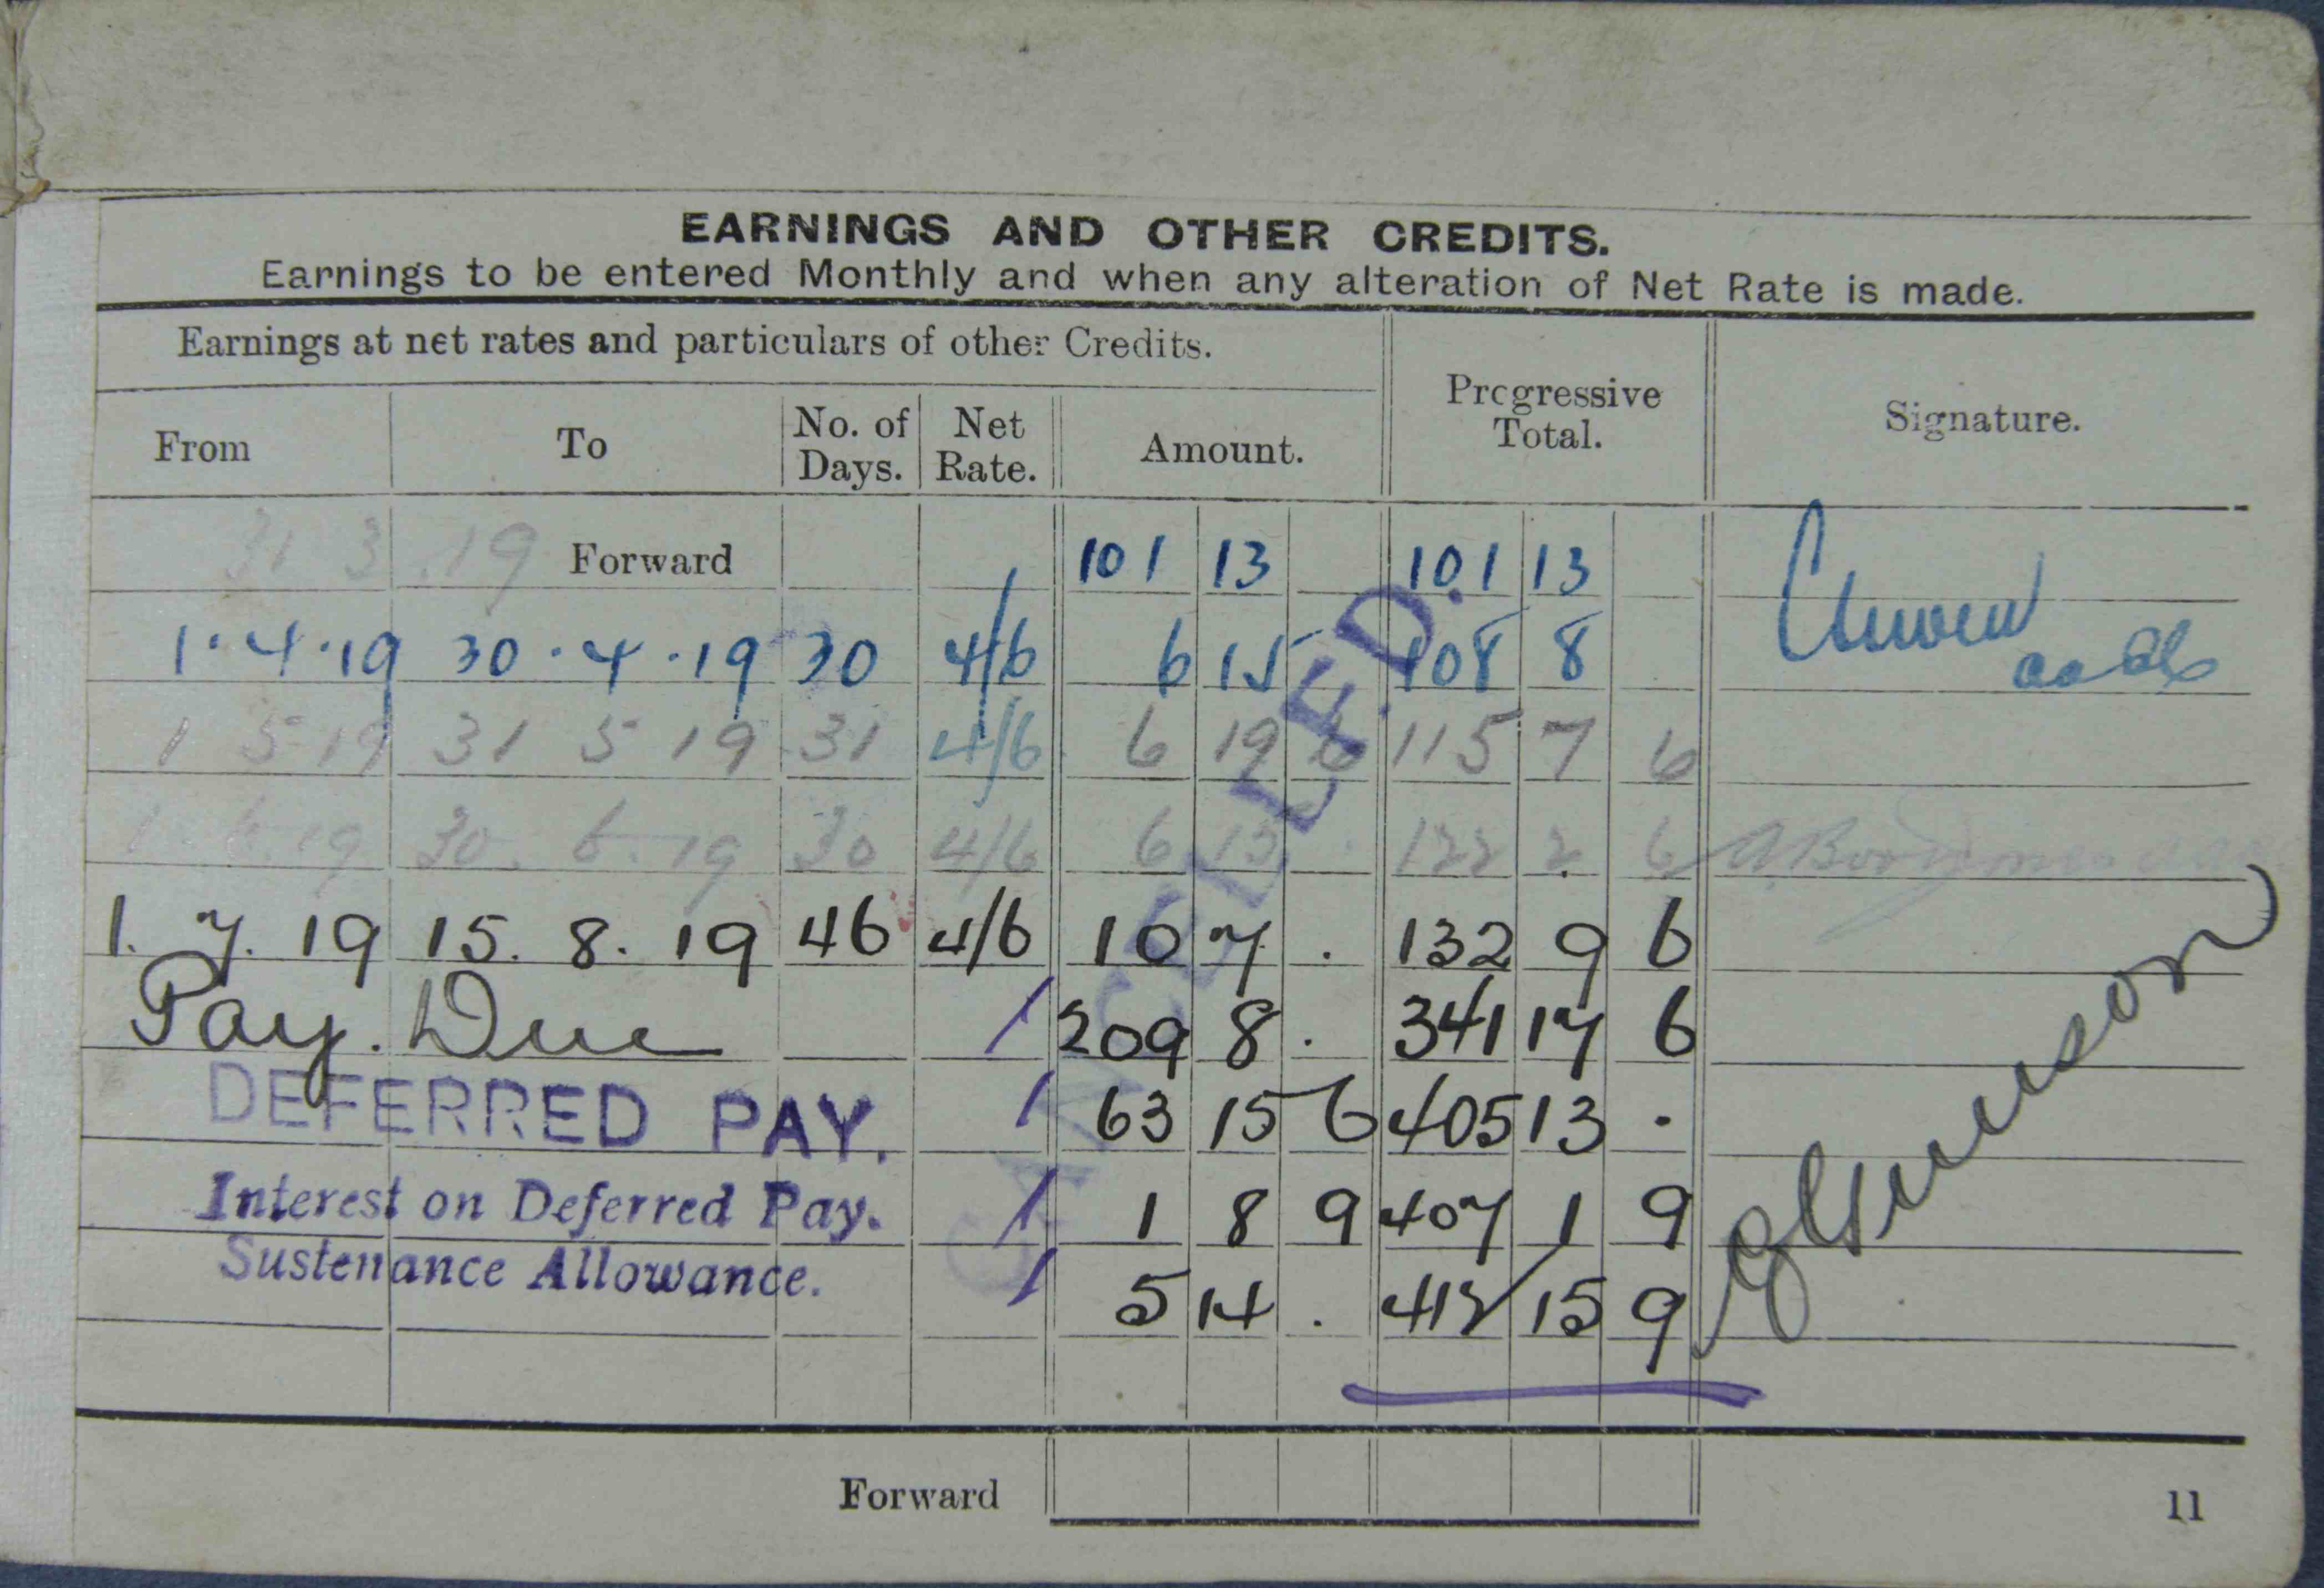 EARNINGS AND OTHER CREDITS.
Earnings to be entered Monthly and when any alteration of Net Rate is made.
Earnings at net rates and particulars of other Credits.
Progressive Total.
Signature.
From To No. of Days. Net Rate. Amount.
31 3 . 19 Forward 101 13 101 13
1.4.19 30.4.19 30 4/6 6 15 108 8
1 5 19 31 5 19 31 4/6 6 19 6 115 7 6
1.6.19 30.6.19 30 4/6 6 15 . 122 2. 6
1.7.19 15.8.19 46 4/6 10 7 . 132 9 6
Pay. Due / 209 8 . 341 17 6
DEFERRED PAY. / 63 15 6 405 13 .
Interest on Deferred Pay. / 1 8 9 407 1 9
Sustenance Allowance. / 5 14 . 412 15 9
CANCELLED.
Forward
11